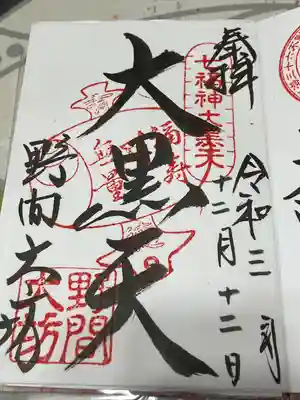 奉拝
令和三年
十二月十二日
大黒天
七福神
福寿
無量
野間大坊
野間
大坊